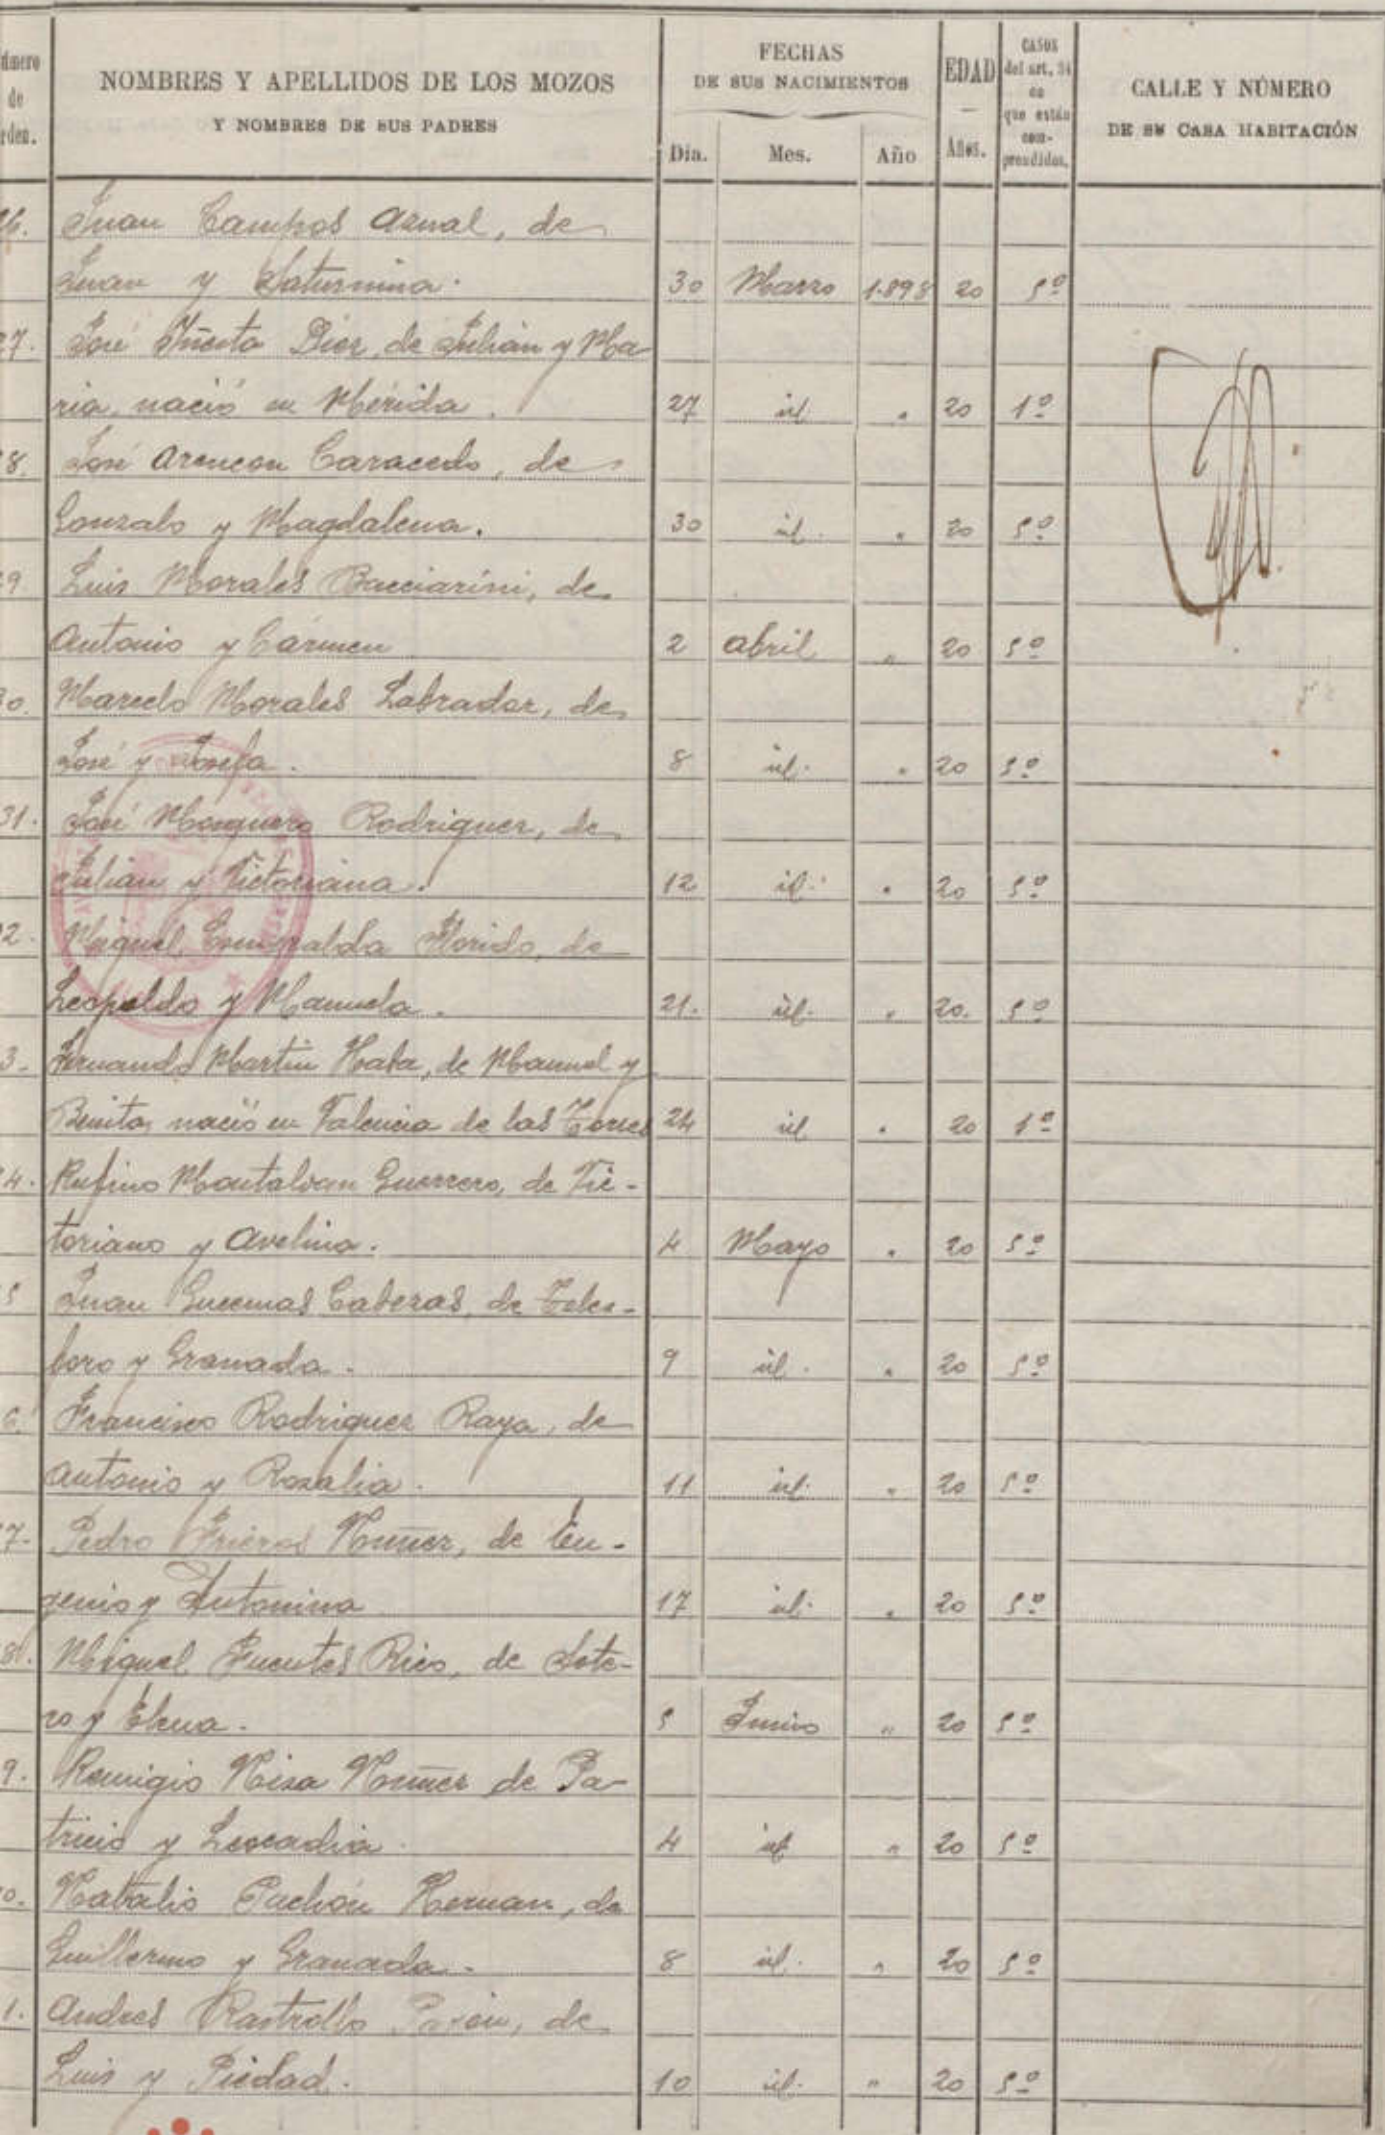 NOMBRES Y APELLIDOS DE LOS MOZOS
Y NOMBRES DE SUS PADRES
FECHAS
DE SUS NACIMIENTOS
Dia. Mes. Año
EDAD
—
Años.
CASOS
del art. 34
en
que están
com-
prendidos.
CALLE Y NÚMERO
DE SU CASA HABITACIÓN
Juan Campos Aznal, de
Juan y Saturnina. 30 Marzo 1.898 20 5º
José Diez, de Julián y Ma-
ria, nació en Mérida. 27 id " 20 1º
José Aroncon Caracedo, de
Gonzalo y Magdalena. 30 id. " 20 5º
Luis Morales Bacciarini, de
Antonio y Cármen 2 Abril " 20 5º
Marcelo Morales Labrador, de
José y Josefa. 8 id. " 20 5º
31. José Mosquero Rodriguez, de
Julián y Victoriana. 12 id. " 20 5º
Miguel Esmeralda Florido, de
Leopoldo y Manuela. 21. id. " 20. 5º
Fernando Martin Haba, de Manuel y
Benita, nació en Valencia de las Torres 24 id " 20 1º
Rufino Montalvan Guerrero, de Vic-
toriano y Avelina. 4 Mayo " 20 5º
Juan Cabezas, de Teles-
foro y Granada. 9 id. " 20 5º
Francisco Rodriguez Raya, de
Antonio y Rosalia. 11 id. " 20 5º
Pedro Nuñez, de Eu-
genio y Antonina 17 id. " 20 5º
Miguel Fuentes Rico, de Sote-
ro y Elena. 5 Junio " 20 5º
Remigio Nisa Nuñez de Pa-
tricio y Leocadia. 4 id " 20 5º
Natalio Pachón Hernan, de
Guillermo y Granada. 8 id. " 20 5º
Andres Rastrollo, de
Luis y Piedad. 10 id. " 20 5º